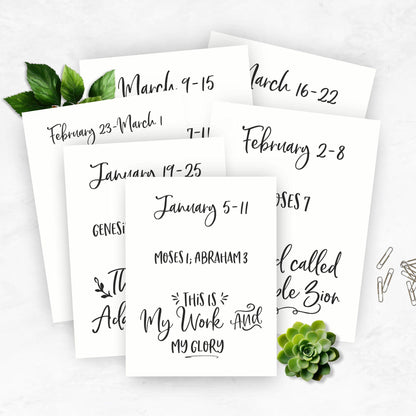 March 9-15
March 16-22
February 23-March 1
7-11
February 2-8
January 19-25
MOSES 7
January 5-11
MOSES 1; ABRAHAM 3
called
Zion
THIS IS
My Work And
MY GLORY